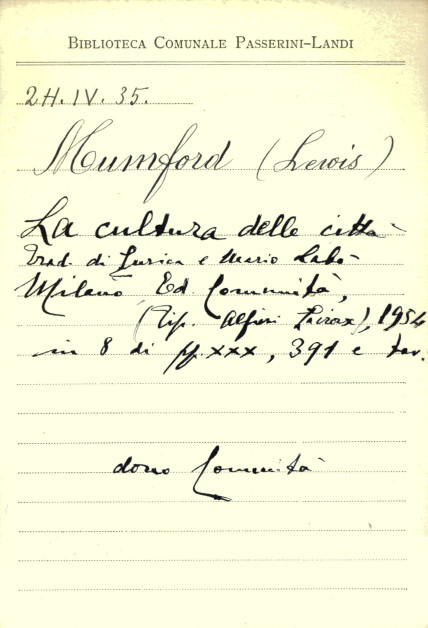 BIBLIOTECA COMUNALE PASSERINI-LANDI
2H.IV.35.
Mumford (Lewis)
La cultura delle città
Trad. di Enrica e Mario Labò
Milano, Ed. Comunità,
(Tip. Alfieri Lacroix), 1954
in 8 di pp. XXX, 391 e tav.
dono Comunità